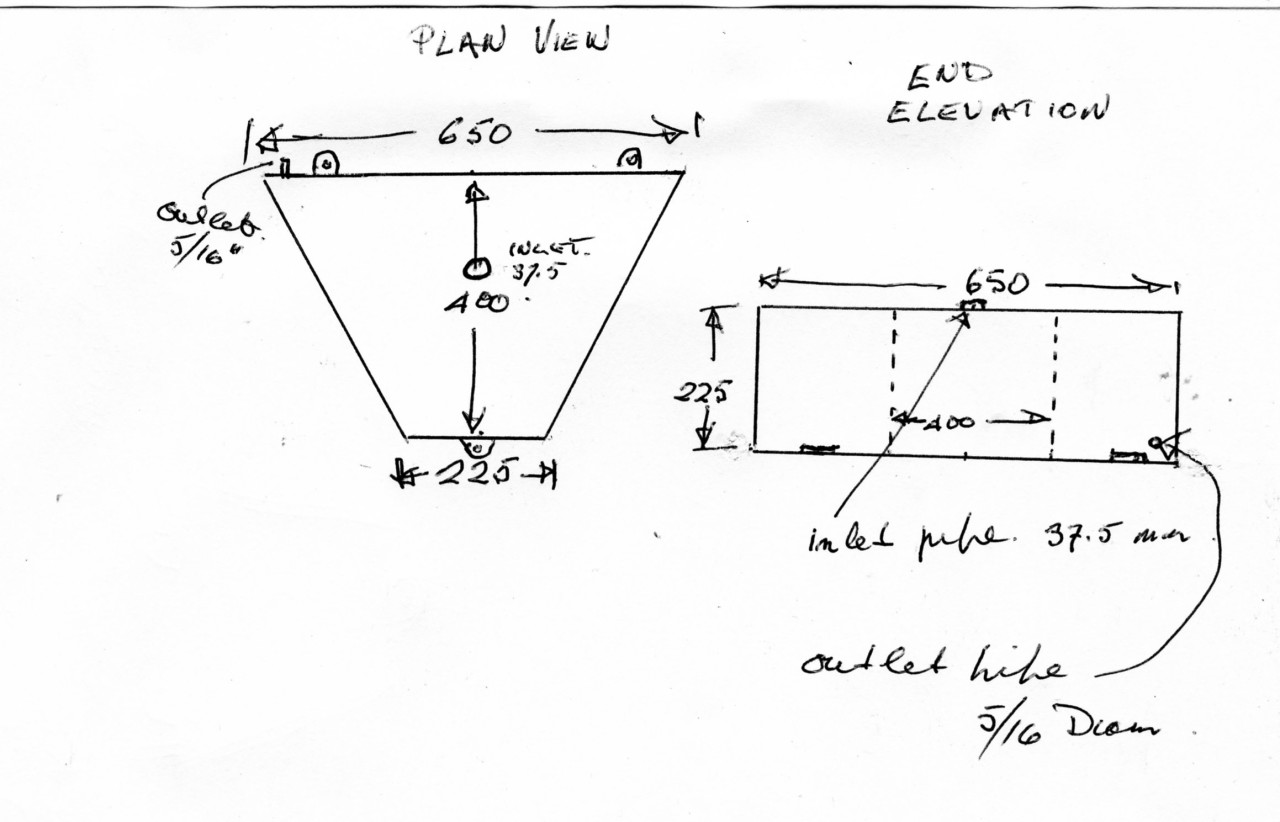 PLAN VIEW
END
ELEVATION
650
outlet
5/16"
INLET.
37.5
400
225
650
225
400
inlet pipe. 37.5 mm
outlet pipe
5/16 Diam